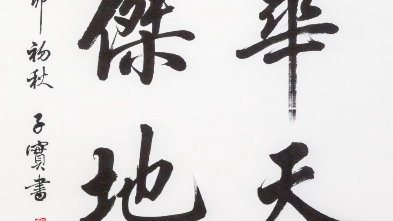 華天
傑地
卯初秋子寶書